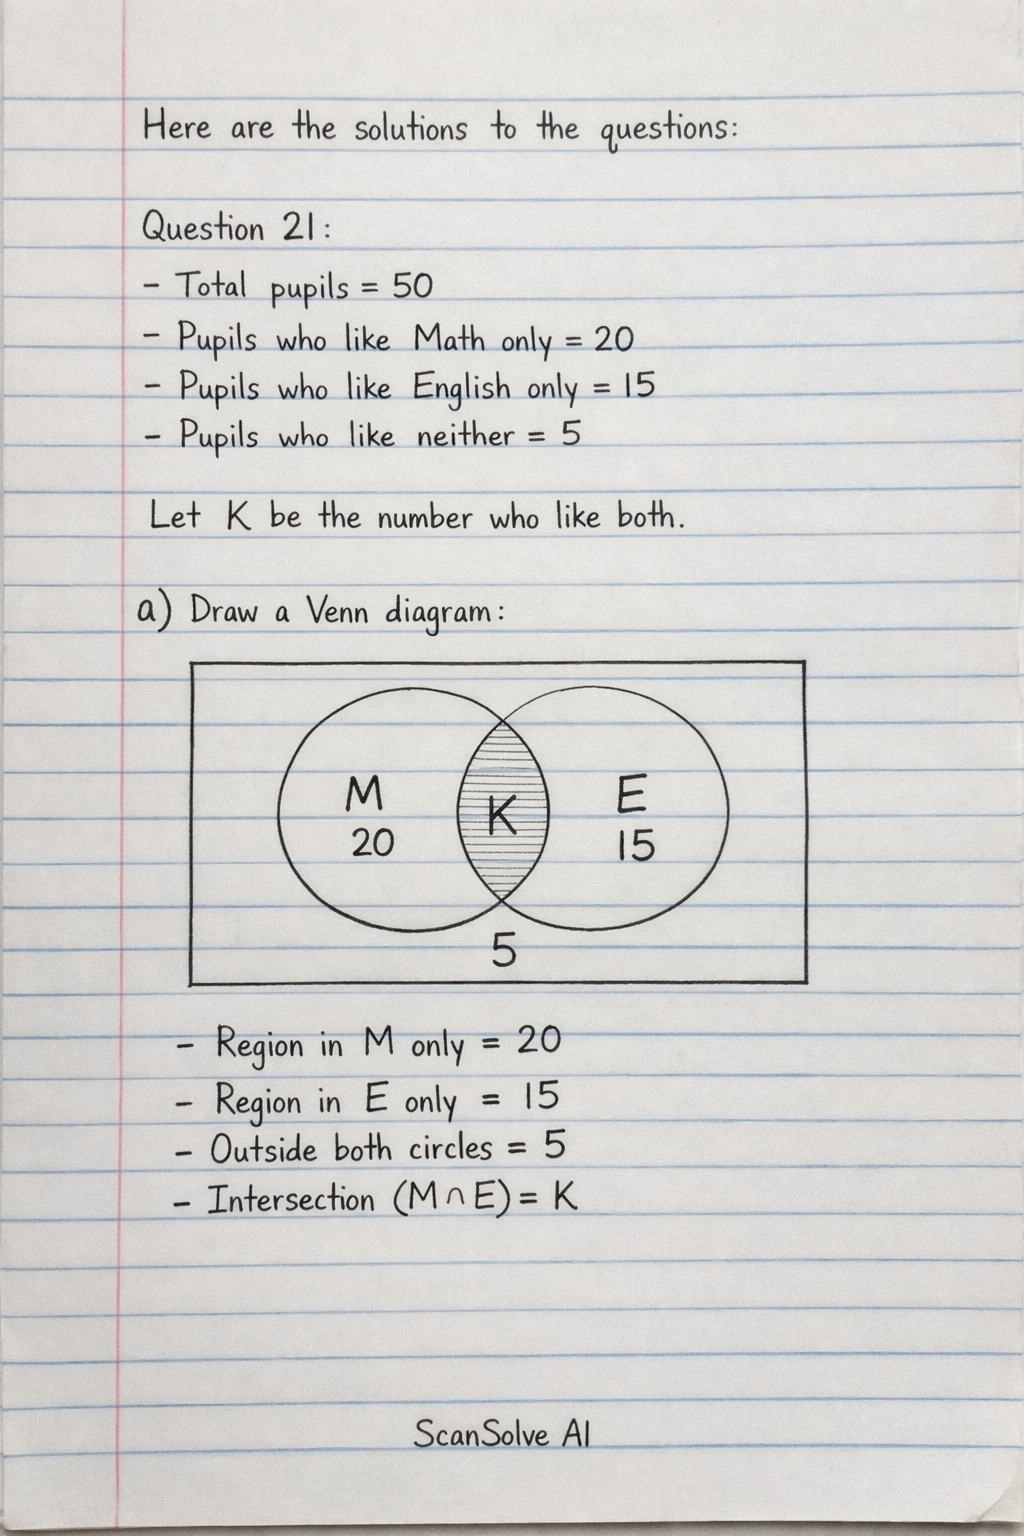 Here are the solutions to the questions:
Question 21:
- Total pupils = 50
- Pupils who like Math only = 20
- Pupils who like English only = 15
- Pupils who like neither = 5
Let K be the number who like both.
a) Draw a Venn diagram:
M K E
20 15
5
- Region in M only = 20
- Region in E only = 15
- Outside both circles = 5
- Intersection (M ∩ E) = K
ScanSolve AI